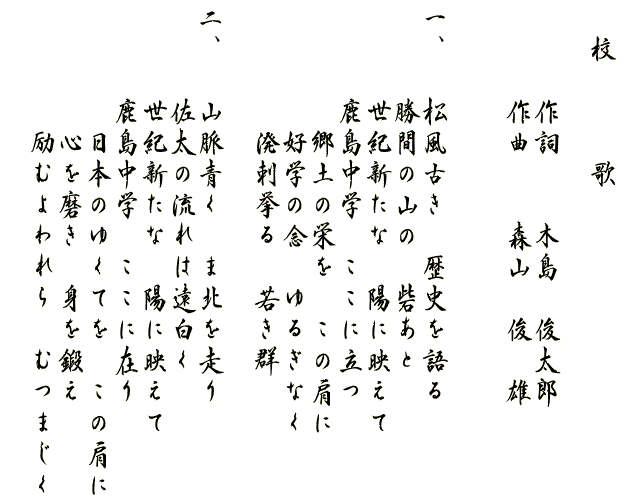 校歌
作詞 木島 俊太郎
作曲 森山 俊雄
一、
松風古き 歴史を語る
勝間の山の 砦あと
世紀新たな 陽に映えて
鹿島中学 ここに立つ
郷土の栄を この肩に
好学の念 ゆるぎなく
溌剌挙る 若き群
二、
山脈青く ま北を走り
佐太の流れは 遠白く
世紀新たな 陽に映えて
鹿島中学 ここに在り
日本のゆくてを この肩に
心を磨き 身を鍛え
励むよわれら むつまじく